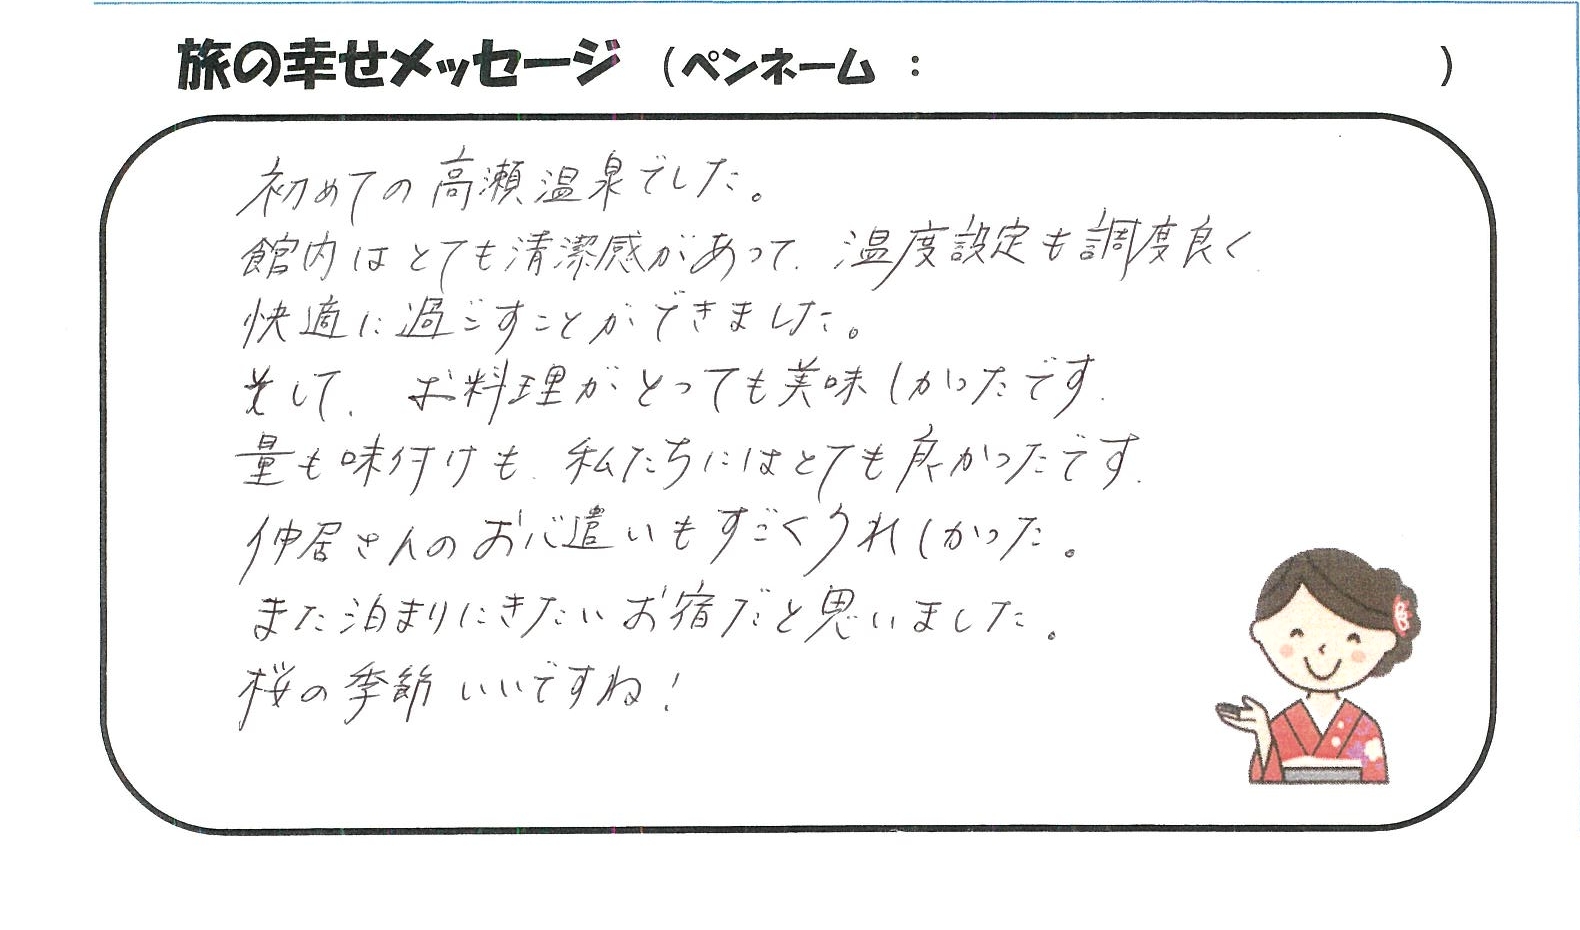 旅の幸せメッセージ （ペンネーム ： ）
初めての高瀬温泉でした。
館内はとても清潔感があって、温度設定も調度良く
快適に過ごすことができました。
そして、お料理がとっても美味しかったです.
量も味付けも、私たちにはとても良かったです.
仲居さんのお心遣いもすごくうれしかった。
また泊まりにきたいお宿だと思いました。
桜の季節いいですね!